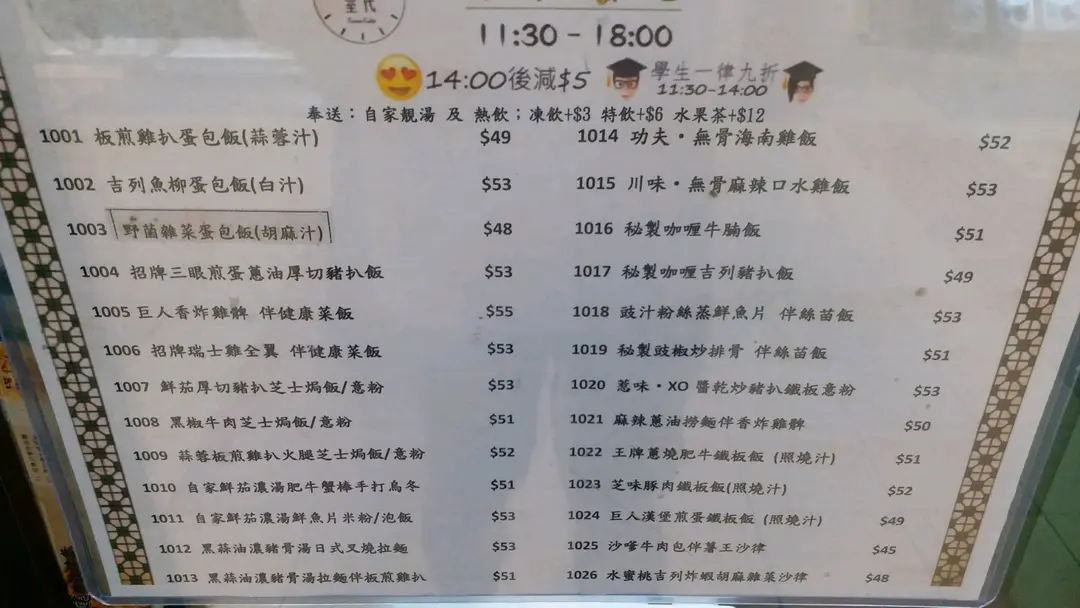 室代
11:30 - 18:00
14:00後減$5
學生一律九折
11:30-14:00
奉送：自家靚湯 及 熱飲；凍飲+$3 特飲+$6 水果茶+$12
1001 板煎雞扒蛋包飯(蒜蓉汁) $49
1002 吉列魚柳蛋包飯(白汁) $53
1003 野菌雜菜蛋包飯(胡麻汁) $48
1004 招牌三眼煎蛋蔥油厚切豬扒飯 $53
1005 巨人香炸雞髀 伴健康菜飯 $55
1006 招牌瑞士雞全翼 伴健康菜飯 $53
1007 鮮茄厚切豬扒芝士焗飯/意粉 $53
1008 黑椒牛肉芝士焗飯/意粉 $51
1009 蒜蓉板煎雞扒火腿芝士焗飯/意粉 $52
1010 自家鮮茄濃湯肥牛蟹棒手打烏冬 $51
1011 自家鮮茄濃湯鮮魚片米粉/泡飯 $53
1012 黑蒜油濃豬骨湯日式叉燒拉麵 $53
1013 黑蒜油濃豬骨湯拉麵伴板煎雞扒 $51
1014 功夫・無骨海南雞飯 $52
1015 川味・無骨麻辣口水雞飯 $53
1016 秘製咖喱牛腩飯 $51
1017 秘製咖喱吉列豬扒飯 $49
1018 豉汁粉絲蒸鮮魚片 伴絲苗飯 $53
1019 秘製豉椒炒排骨 伴絲苗飯 $51
1020 惹味・XO 醬乾炒豬扒鐵板意粉 $53
1021 麻辣蔥油撈麵伴香炸雞髀 $50
1022 王牌蔥燒肥牛鐵板飯 (照燒汁) $51
1023 芝味豚肉鐵板飯(照燒汁) $52
1024 巨人漢堡煎蛋鐵板飯 (照燒汁) $49
1025 沙嗲牛肉包伴薯王沙律 $45
1026 水蜜桃吉列炸蝦胡麻雜菜沙律 $48